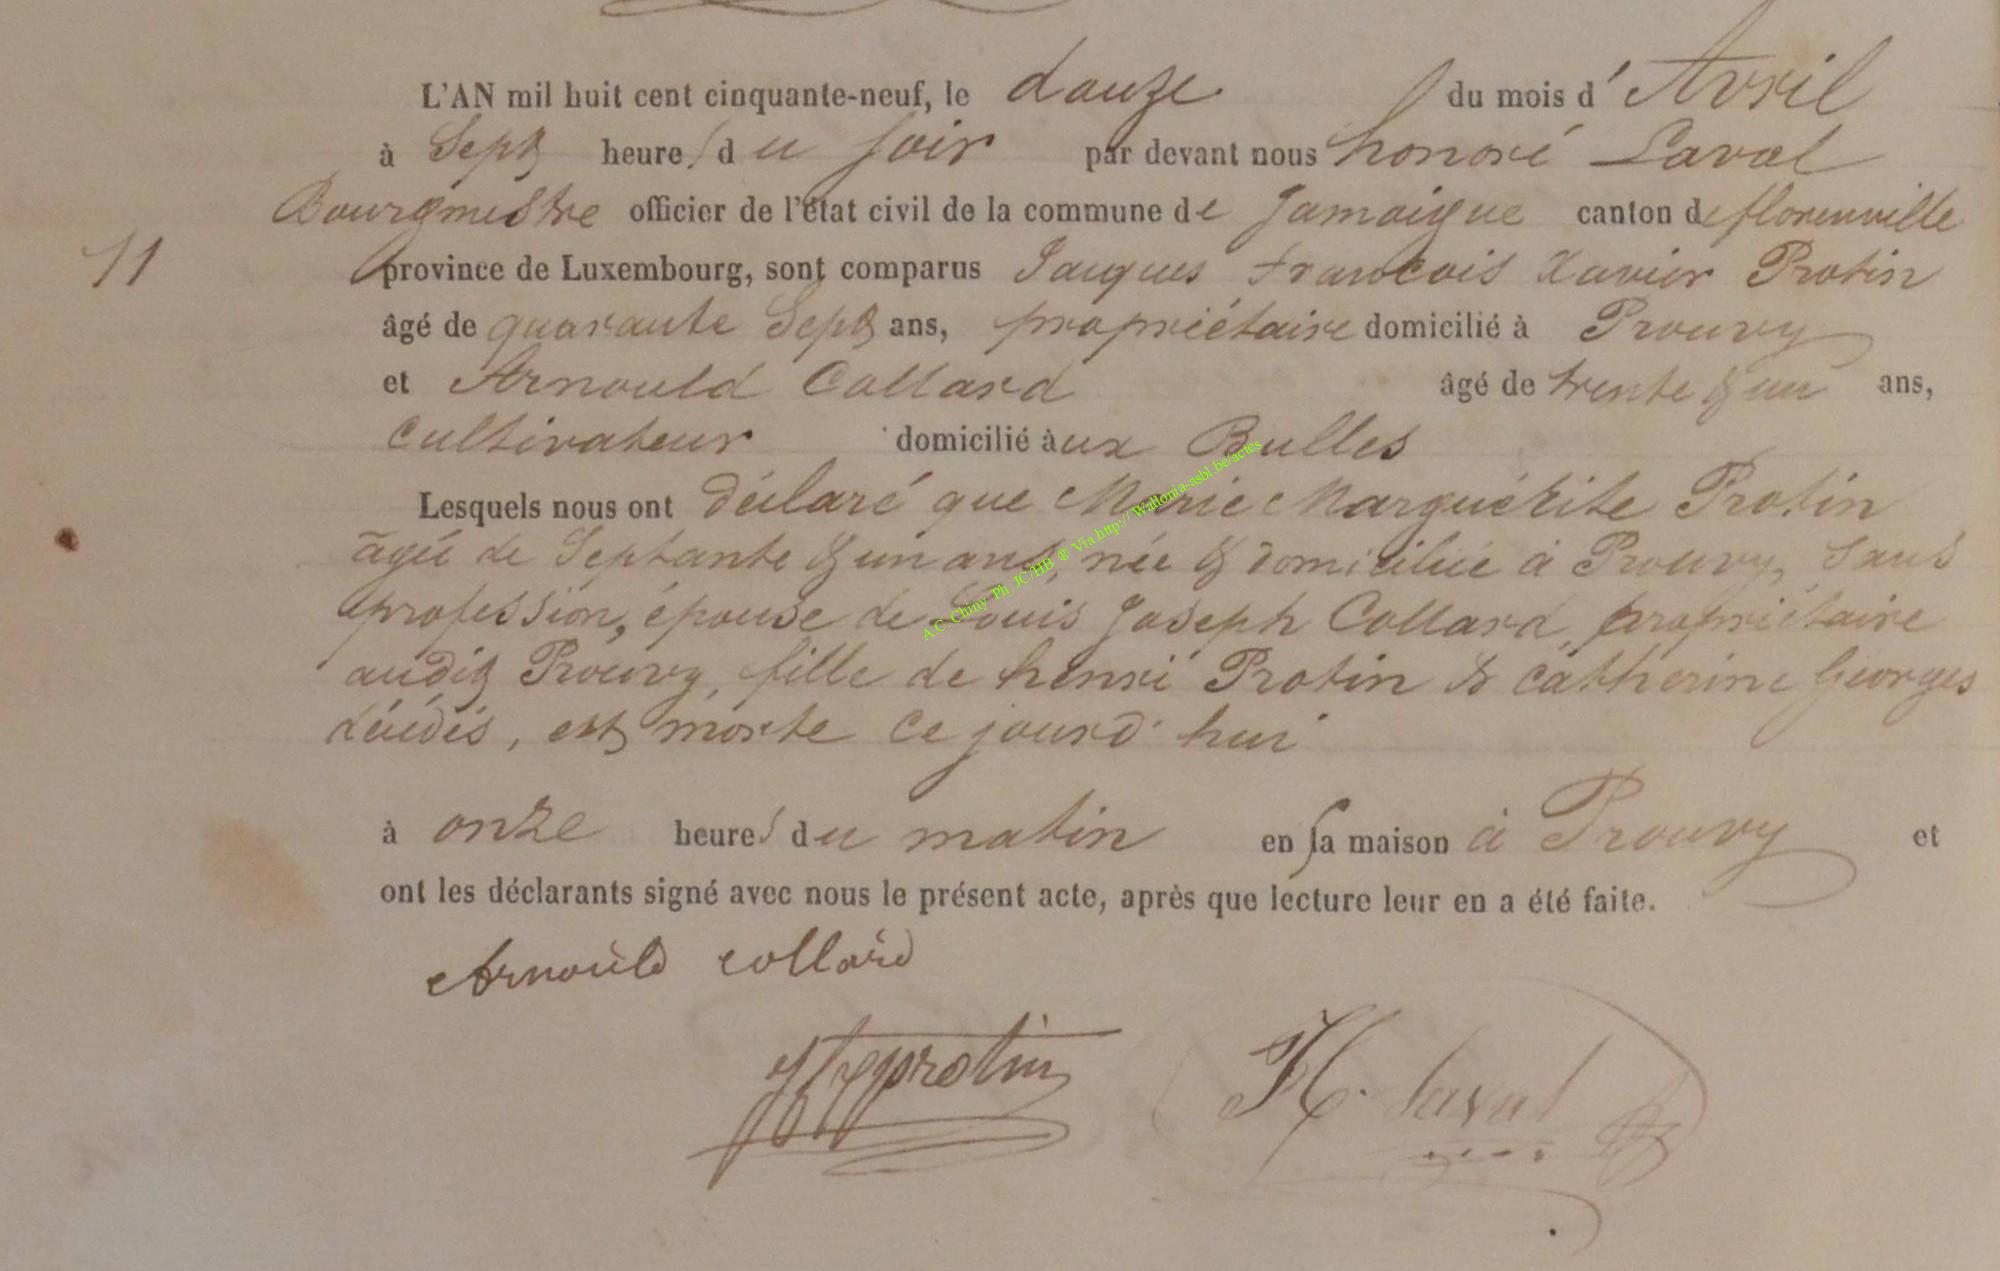 L'AN mil huit cent cinquante-neuf, le douze du mois d'Avril
à Sept heures du soir par devant nous honoré Laval
Bourgmestre officier de l'état civil de la commune de Jamoigne canton de florenville
11
province de Luxembourg, sont comparus Jacques francois Xavier Protin
âgé de quarante Sept ans, propriétaire domicilié à Prouvy
et Arnould Collard âgé de trente & un ans,
Cultivateur domicilié àux Bulles
Lesquels nous ont déclaré que Marie Marguérite Protin
âgée de Septante & un ans, née & domiciliée à Prouvy, Sans
profession, épouse de Louis Joseph Collard, propriétaire
audit Prouvy, fille de henri Protin & catherine Georges
décédés, est morte ce jourd'hui
à onze heures du matin en sa maison à Prouvy et
ont les déclarants signé avec nous le présent acte, après que lecture leur en a été faite.
Arnould collard
protin H. Laval
A.C. Chiny Ph JC/HB ® Via http:// Wallonia-asbl.be/actes